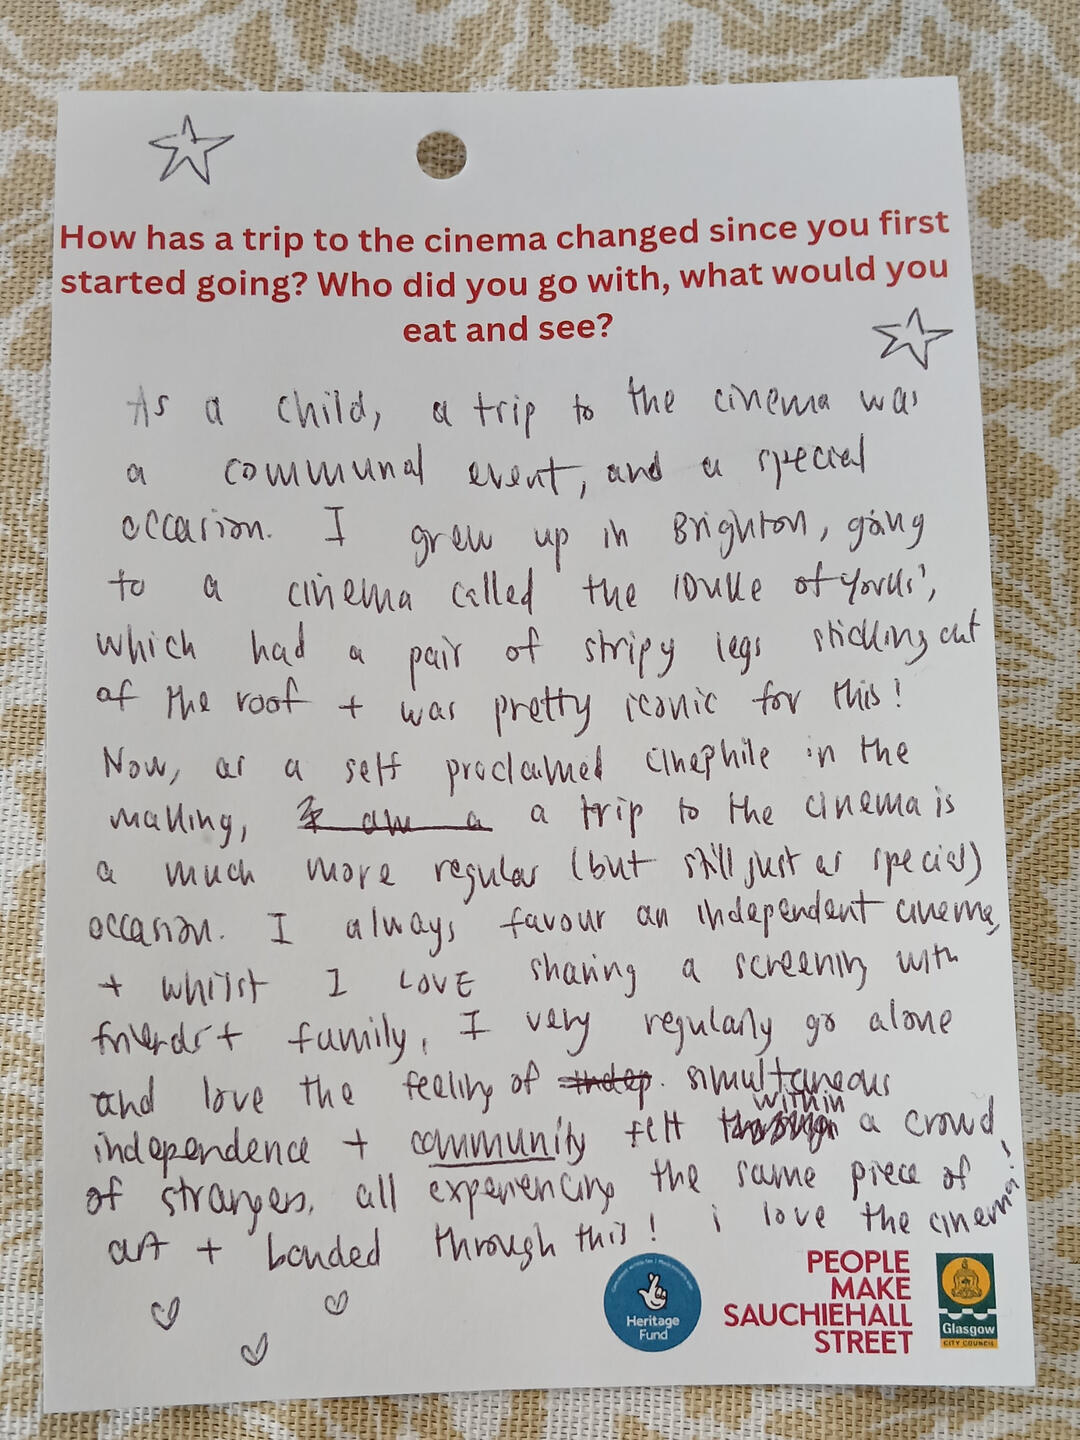 How has a trip to the cinema changed since you first
started going? Who did you go with, what would you
eat and see?
As a child, a trip to the cinema was
a communal event, and a special
occasion. I grew up in Brighton, going
to a cinema called the Duke of Yorks',
which had a pair of stripy legs sticking out
of the roof + was pretty iconic for this!
Now, as a self proclaimed cinephile in the
making, I am a a trip to the cinema is
a much more regular (but still just as special)
occasion. I always favour an independent cinema,
+ whilst I LOVE sharing a screening with
friends + family, I very regularly go alone
and love the feeling of indep. simultaneous
independence + community felt through within a crowd
of strangers, all experiencing the same piece of
art + bonded through this! i love the cinema!
Heritage
Fund
PEOPLE
MAKE
SAUCHIEHALL
STREET
Glasgow
CITY COUNCIL